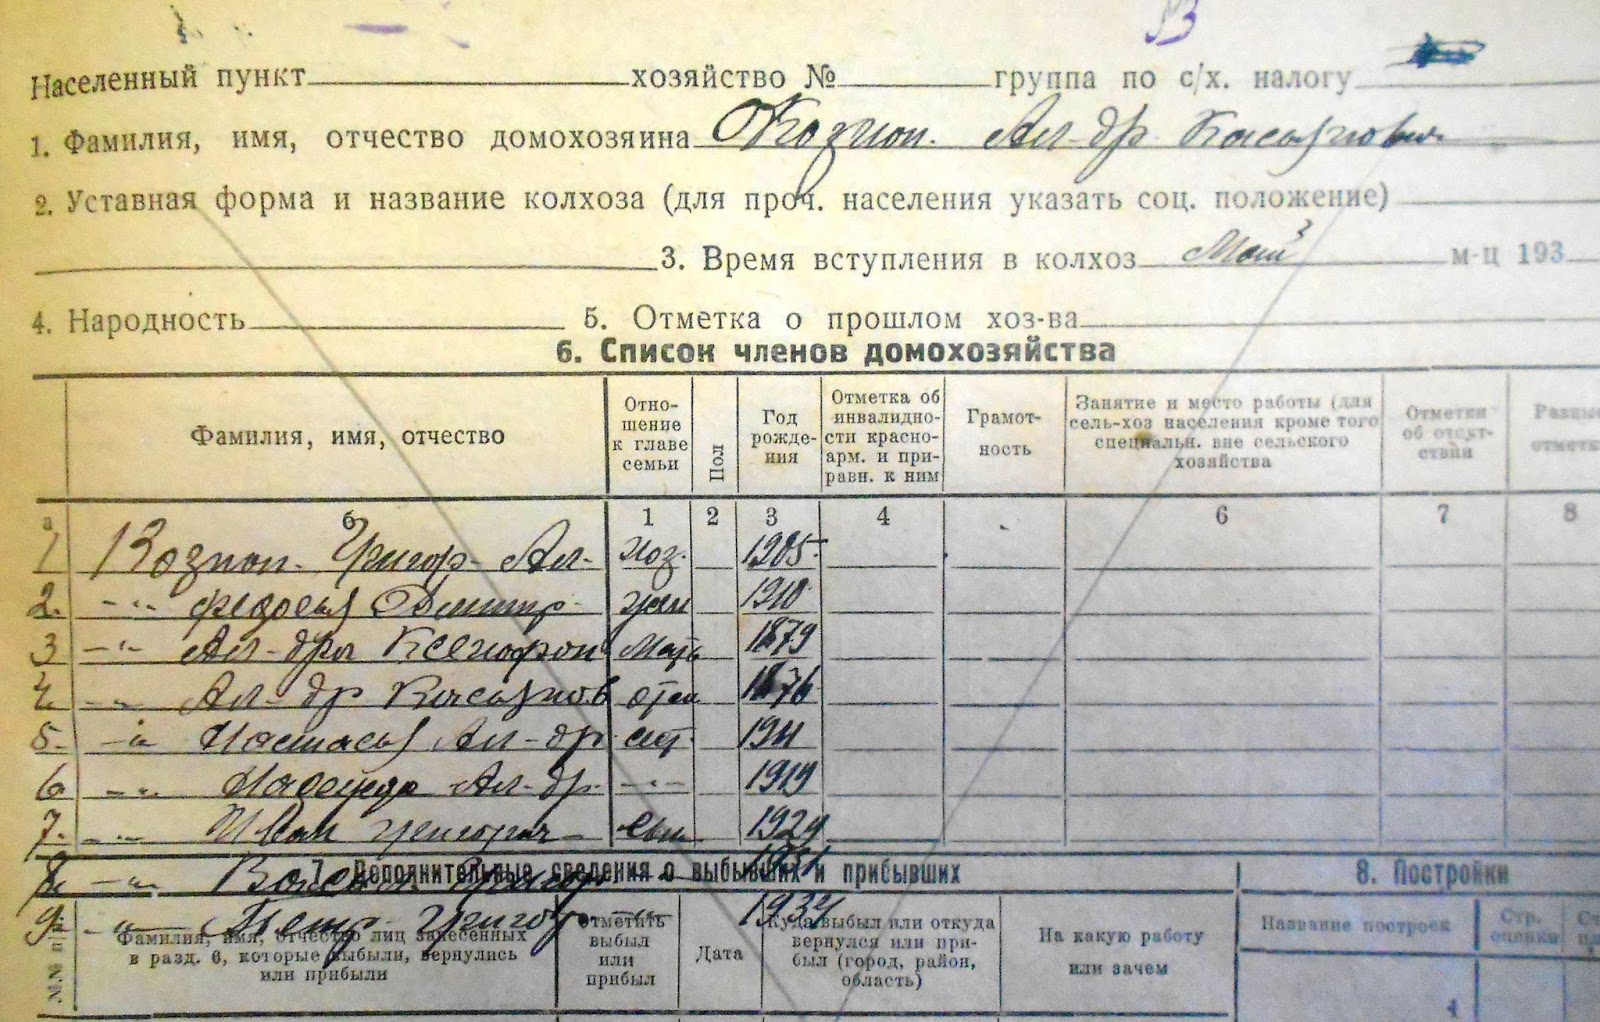 Населенный пункт хозяйство № группа по с/х. налогу
1. Фамилия, имя, отчество домохозяина Ал-др
2. Уставная форма и название колхоза (для проч. населения указать соц. положение)
3. Время вступления в колхоз м-ц 193
4. Народность 5. Отметка о прошлом хоз-ва
6. Список членов домохозяйства
Фамилия, имя, отчество
Отно-
шение
к главе
семьи
Пол
Год
рожде-
ния
Отметка об
инвалидно-
сти красно-
арм. и при-
равн. к ним
Грамот-
ность
Занятие и место работы (для
сель-хоз населения кроме того
специальн. вне сельского
хозяйства
Отметки
об отсут-
ствии
Разные
отметк
а б 1 2 3 4 6 7 8
1 Григор- Ал- хоз. 1905
2. -"- Димитр- жен 1910
3 -"- Ал-дра Ксенофон мать 1879
4 -"- Ал-др отец 1876
5. -"- Настасья Ал-др 1911
6 -"- Ал-др. -"- 1919
7. -"- Иван сын 1929
8. -"- 1931
7. Дополнительные сведения о выбывших и прибывших 8. Постройки
9. -"- Петр Григор -"- 1934
№№ пп
Фамилия, имя, отчество лиц занесенных
в разд. 6, которые выбыли, вернулись
или прибыли
Отметить
выбыл
или
прибыл
Дата
Куда выбыл или откуда
вернулся или при-
был (город, район,
область)
На какую работу
или зачем
Название построек
Стр.
оценки